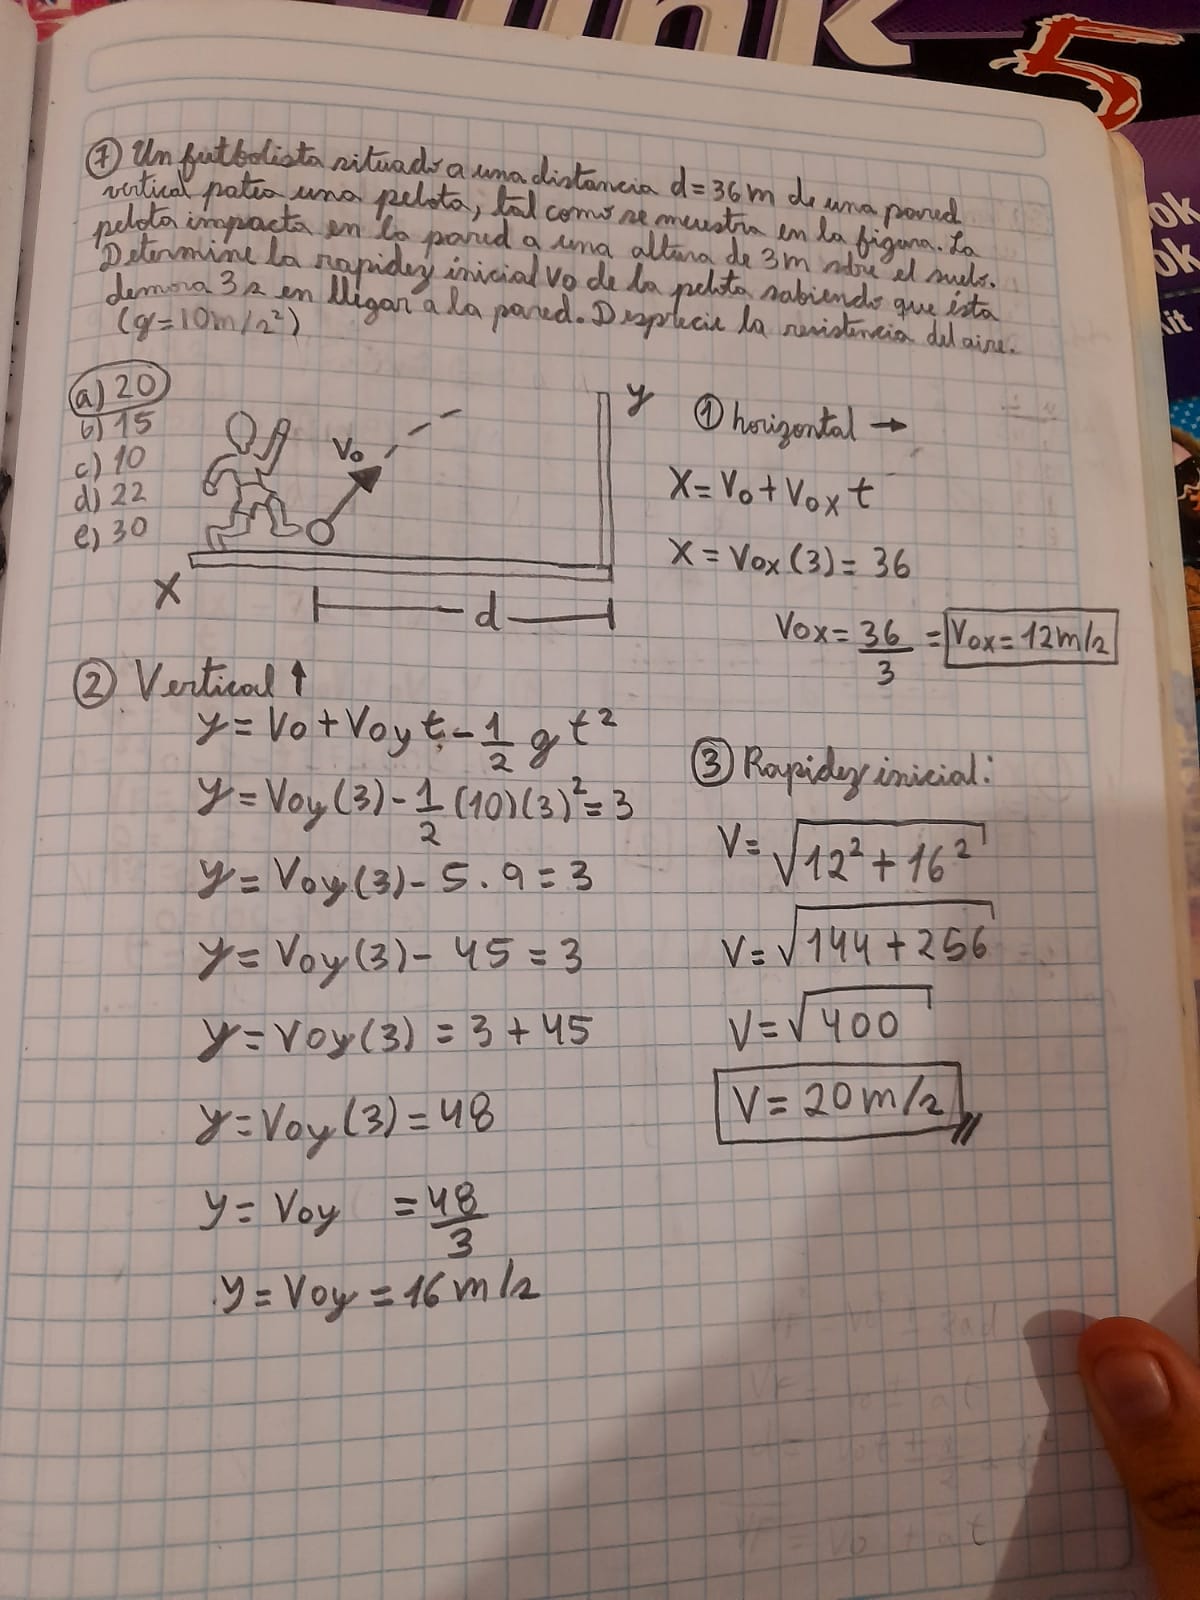 ink 5
ok
ok
kit
⑦ Un futbolista situado a una distancia d=36m de una pared
vertical patea una pelota, tal como se muestra en la figura. La
pelota impacta en la pared a una altura de 3m sobre el suelo.
Determine la rapidez inicial Vo de la pelota sabiendo que ésta
demora 3s en llegar a la pared. Desprecie la resistencia del aire.
(g=10m/s²)
a) 20
b) 15
c) 10
d) 22
e) 30
Vo
y
X
d
① horizontal →
X = Vo + Vox t
X = Vox (3) = 36
Vox = 36/3 = Vox = 12m/s
② Vertical ↑
y = Vo + Voy t - 1/2 g t²
y = Voy (3) - 1/2 (10)(3)² = 3
y = Voy (3) - 5 . 9 = 3
y = Voy (3) - 45 = 3
y = Voy (3) = 3 + 45
y = Voy (3) = 48
y = Voy = 48/3
y = Voy = 16 m/s
③ Rapidez inicial:
V = √12² + 16²
V = √144 + 256
V = √400
V = 20 m/s